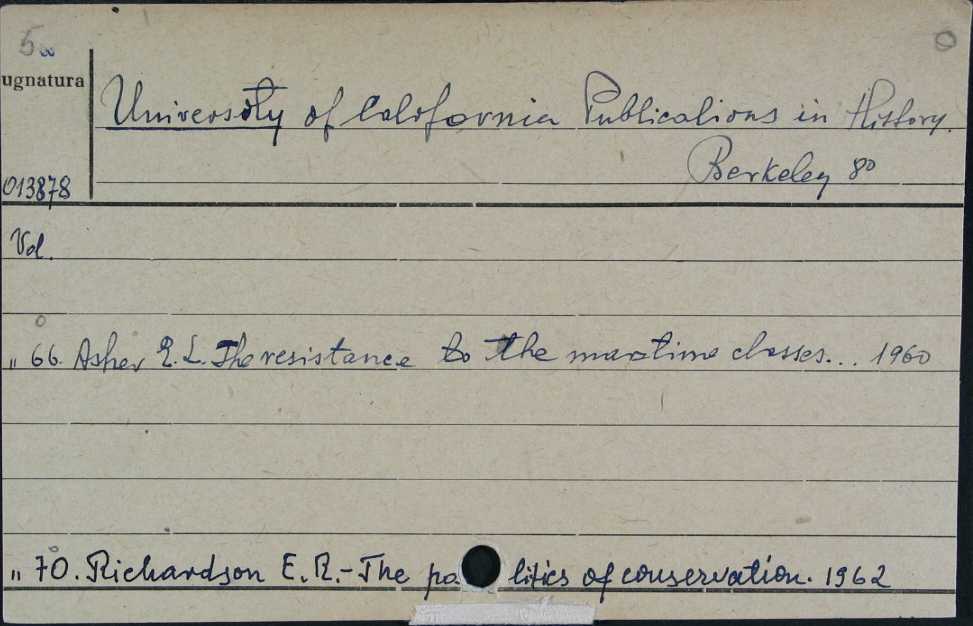 5
ugnatura
University of California Publications in History.
Berkeley 8º
013878
Vol.
„ 66. Asher E. L. The resistance to the maritime classes... 1960
„ 70. Richardson E. R. - The po litics of conservation. 1962